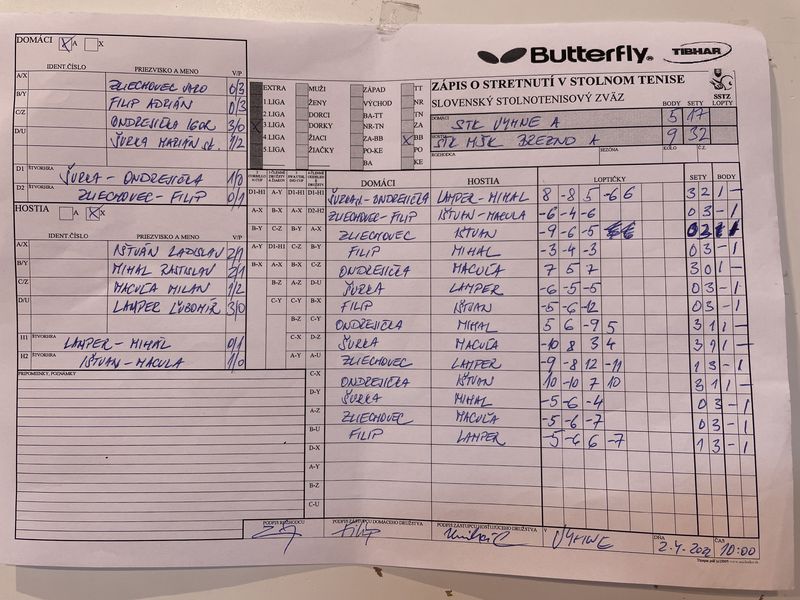 DOMÁCI X A X
Butterfly. TIBHAR
IDENT.ČÍSLO PRIEZVISKO A MENO V/P
A/X ZLIECHOVEC 0/3
B/Y FILIP ADRIÁN 0/3
C/Z ONDREJIČKA IGOR 3/0
D/U ŠURKA MARIÁN st. 1/2
D1 ŠTVORHRA ŠURKA - ONDREJIČKA 1/0
D2 ZLIECHOVEC - FILIP 0/1
HOSTIA A X X
IDENT.ČÍSLO PRIEZVISKO A MENO V/P
A/X IŠTVÁN LADISLAV 2/1
B/Y MIHAL RASTISLAV 2/1
C/Z MACUĽA MILAN 1/2
D/U LAMPER ĽUBOMÍR 3/0
H1 ŠTVORHRA LAMPER - MIHÁL 0/1
H2 ŠTVORHRA IŠTVAN - MACULA 1/0
PRIPOMIENKY, POZNÁMKY
EXTRA MUŽI ZÁPAD TT
1 LIGA ŽENY VÝCHOD NR
2 LIGA DORCI BA-TT TN
3 LIGA DORKY NR-TN ZA
4 LIGA ŽIACI ZA-BB X BB
5 LIGA ŽIAČKY PO-KE PO
BA KE
ZÁPIS O STRETNUTÍ V STOLNOM TENISE
SLOVENSKÝ STOLNOTENISOVÝ ZVÄZ
SSTZ
BODY SETY LOPTY
DOMÁCI STK VYHNE A 5 17
HOSTIA STK MŠK BREZNO A 9 32
ROZHODCA SEZÓNA KOLO Č.Z.
DOMÁCI HOSTIA LOPTIČKY SETY BODY
D1-H1 A-Y D1-H1 D1-H1 ŠURKA - ONDREJIČKA LAMPER - MIHAL 8 -8 5 -6 6 3 2 1 -
A-X B-X A-X D2-H2 ZLIECHOVEC - FILIP IŠTVAN - MACULA -6 -4 -6 0 3 - 1
B-Y C-Z B-Y A-X ZLIECHOVEC IŠTVAN -9 -6 -5
A-Y D1-H1 C-Z B-Y FILIP MIHAL -3 -4 -3 0 3 - 1
B-X A-X B-X C-Z ONDREJIČKA MACUĽA 7 5 7 3 0 1 -
B-Z A-Z D-U ŠURKA LAMPER -6 -5 -5 0 3 - 1
C-Y C-Y B-X FILIP IŠTVAN -5 -6 -12 0 3 - 1
B-Z C-Y ONDREJIČKA MIHAL 5 6 -9 5 3 1 1 -
C-X D-Z ŠURKA MACUĽA -10 8 3 4 3 1 1 -
A-Y A-U ZLIECHOVEC LAMPER -9 -8 12 -11 1 3 - 1
C-X ONDREJIČKA IŠTVAN 10 -10 7 10 3 1 1 -
D-Y ŠURKA MIHAL -5 -6 -4 0 3 - 1
A-Z ZLIECHOVEC MACUĽA -5 -6 -7 0 3 - 1
B-U FILIP LAMPER -5 -6 6 -7 1 3 - 1
D-X
A-Y
B-Z
C-U
PODPIS ROZHODCU PODPIS ZÁSTUPCU DOMÁCEHO DRUŽSTVA Filip PODPIS ZÁSTUPCU HOSŤUJÚCEHO DRUŽSTVA V VYHNE DŇA 2.4.2022 ČAS 10:00